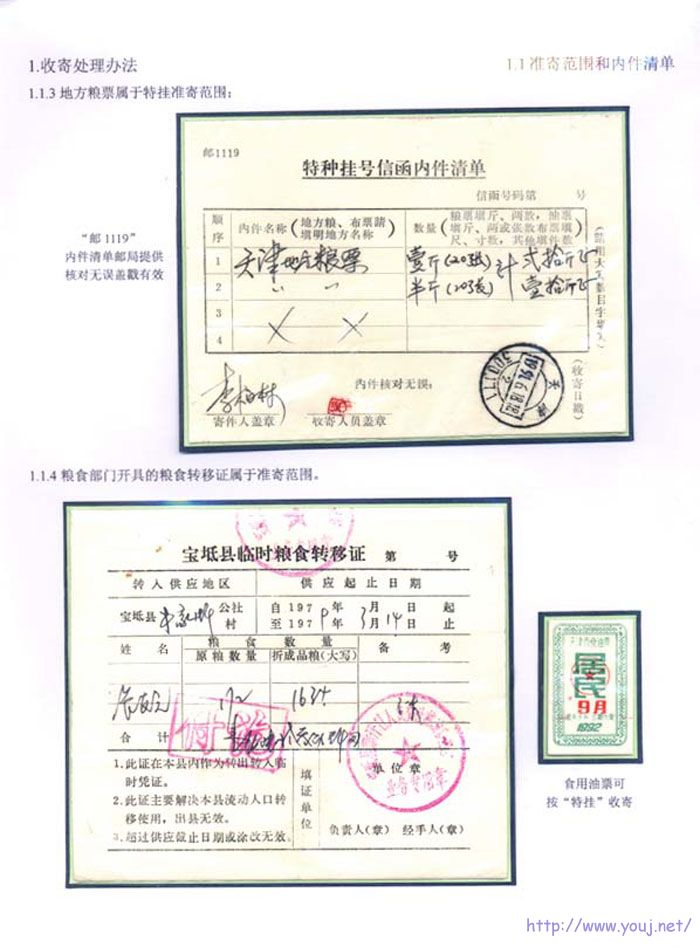 1.收寄处理办法
1.1 准寄范围和内件清单
1.1.3 地方粮票属于特挂准寄范围;
邮1119
特种挂号信函内件清单
信函号码第 号
顺序
内件名称(地方粮、布票請填明地方名称)
数量(粮票填斤、两数,油票填斤、两或张数布票填尺、寸数,其他填件数)
1 天津地方粮票 壹斤(20张) 计 弍拾斤
2 〃 〃 半斤(20张) 壹拾斤
3
4
(收寄日戳)
300171
天津
李柏林
内件核对无误:
寄件人盖章
收寄人员盖章
“邮1119”
内件清单邮局提供
核对无误盖戳有效
1.1.4 粮食部门开具的粮食转移证属于准寄范围。
宝坻县临时粮食转移证 第 号
转入供应地区 供应起止日期
宝坻县 公社 村
自197 9年 月 日 起
至197 9年 3月14日 止
姓名 粮食数量 备考
原粮数量 折成品粮(大写)
合计
单位章
业务专用章
填证单位
1.此证在本县内作为转出转入临时凭证。
2.此证主要解决本县流动人口转移使用,出县无效。
3.超过供应截止日期或涂改无效。
负责人(章) 经手人(章)
居民
9月
1992
食用油票可
按“特挂”收寄
http://www.youj.net/